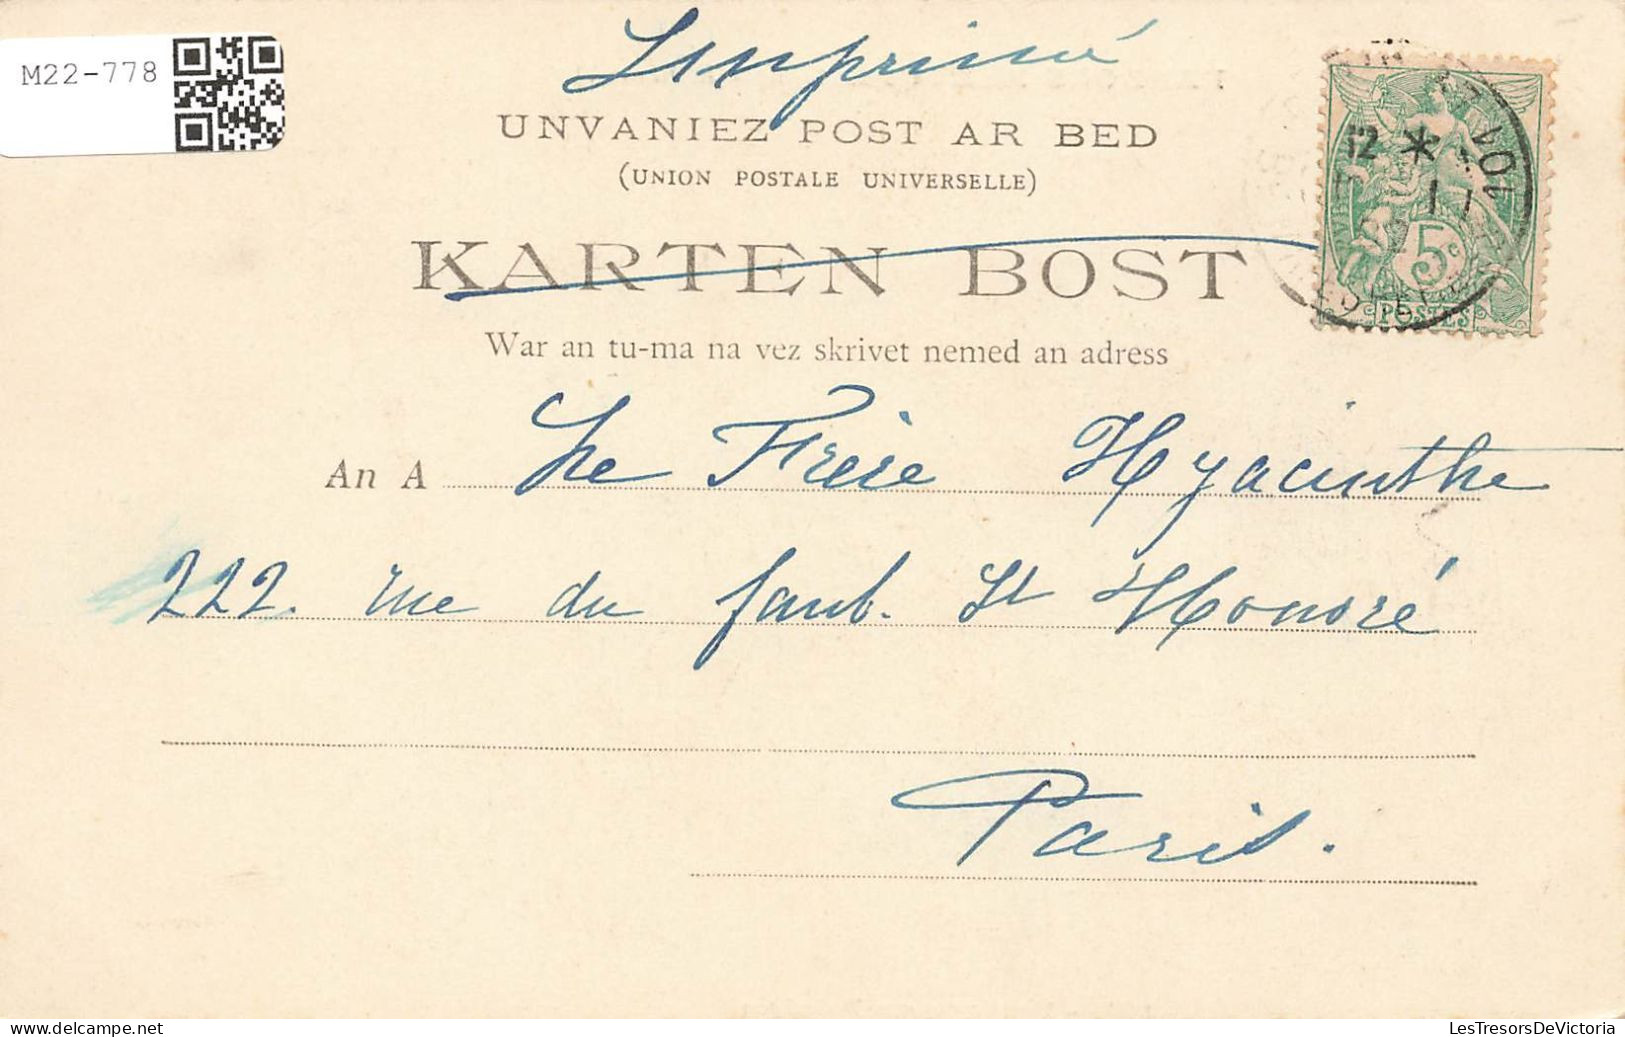 M22-778
Imprimé
UNVANIEZ POST AR BED
(UNION POSTALE UNIVERSELLE)
KARTEN BOST
War an tu-ma na vez skrivet nemed an adress
An A Le Frère Hyacinthe
222. rue du faub. St Honoré
Paris.
5c
POSTES
LesTresorsDeVictoria
www.delcampe.net